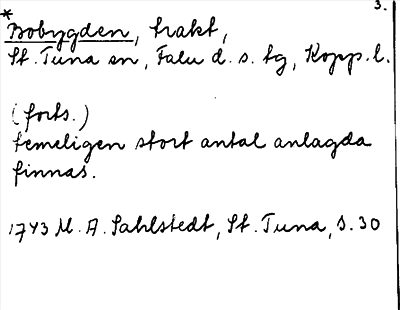 3.
* Bobygden, trakt,
St. Tuna sn, Falu d. s. tg, Kopp. l.
(forts.)
temeligen stort antal anlagda
finnas.
1743 M. A. Sahlstedt, St. Tuna, s. 30